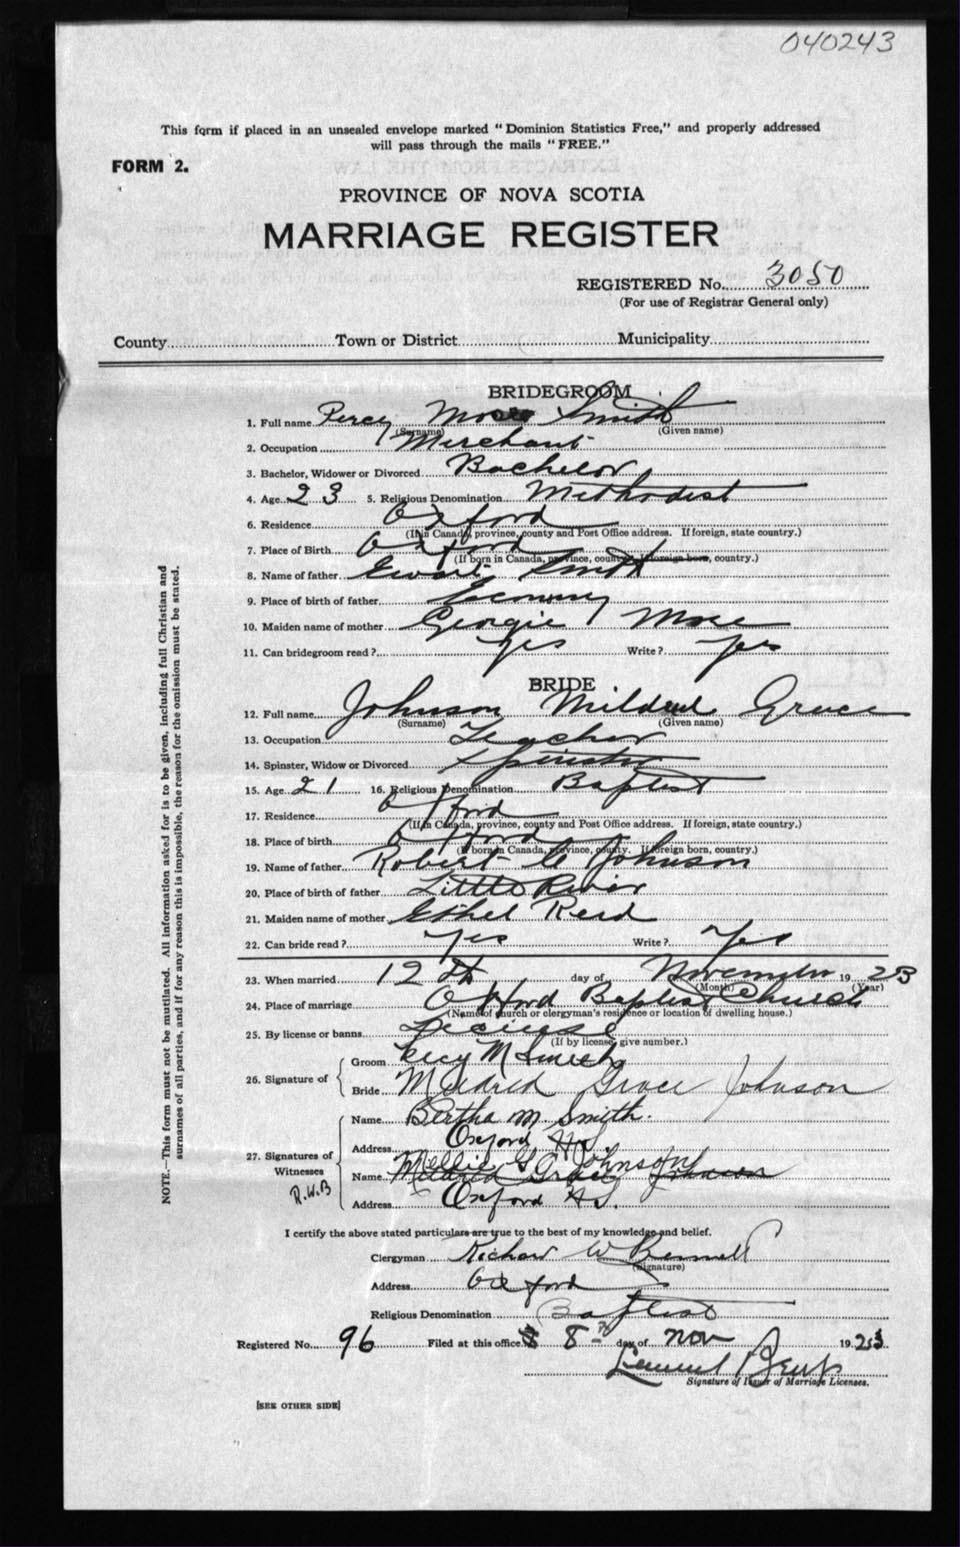 040243
This form if placed in an unsealed envelope marked "Dominion Statistics Free," and properly addressed
will pass through the mails "FREE."
FORM 2.
PROVINCE OF NOVA SCOTIA
MARRIAGE REGISTER
REGISTERED No. 3050
(For use of Registrar General only)
County Town or District Municipality
BRIDEGROOM
1. Full name Percy Moses Smith
(Surname) (Given name)
2. Occupation Merchant
3. Bachelor, Widower or Divorced Bachelor
4. Age 23 5. Religious Denomination Methodist
6. Residence Oxford
(If in Canada, province, county and Post Office address. If foreign, state country.)
7. Place of Birth Oxford
(If born in Canada, province, county. If foreign born, country.)
8. Name of father Ewart Smith
9. Place of birth of father Economy
10. Maiden name of mother Georgie Mose
11. Can bridegroom read? Yes Write? Yes
BRIDE
12. Full name Johnson Mildred Grace
(Surname) (Given name)
13. Occupation Teacher
14. Spinster, Widow or Divorced Spinster
15. Age 21 16. Religious Denomination Baptist
17. Residence Oxford
(If in Canada, province, county and Post Office address. If foreign, state country.)
18. Place of birth Oxford
(If born in Canada, province, county. If foreign born, country.)
19. Name of father Robert Johnson
20. Place of birth of father Little River
21. Maiden name of mother Ethel Reid
22. Can bride read? Yes Write? Yes
23. When married 12th day of November 1923
(Month) (Year)
24. Place of marriage Oxford Baptist Church
(Name of church or clergyman's residence or location of dwelling house.)
25. By license or banns License
(If by license, give number.)
26. Signature of
Groom Percy M Smith
Bride Mildred Grace Johnson
27. Signatures of Witnesses
Name Bertha M. Smith.
Address Oxford NS
Name Nellie G. Johnson
Mildred Grace Johnson
R.W.B
Address Oxford N.S.
I certify the above stated particulars are true to the best of my knowledge and belief.
Clergyman Richard W Bennett
(Signature)
Address Oxford
Religious Denomination Baptist
Registered No. 96 Filed at this office 8 day of Nov 1923
Signature of Issuer of Marriage Licenses.
[SEE OTHER SIDE]
NOTE.—This form must not be mutilated. All information asked for is to be given, including full Christian and
surnames of all parties, and if for any reason this is impossible, the reason for the omission must be stated.